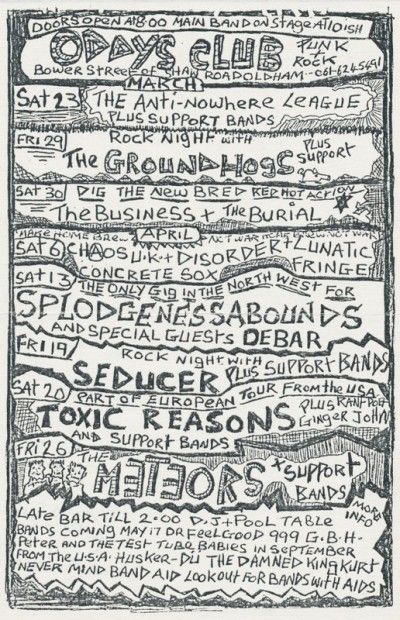 DOORS OPEN AT 8:00 MAIN BAND ON STAGE AT 10ISH
ODDYS CLUB PUNK + ROCK
BOWER STREET OF SHAW ROAD OLDHAM - 061-624-5691
MARCH
SAT 23 THE ANTI-NOWHERE LEAGUE
PLUS SUPPORT BANDS
FRI 29 ROCK NIGHT WITH
THE GROUNDHOGS PLUS SUPPORT
SAT 30 DIG THE NEW BRED RED HOT ACTION
THE BUSINESS + THE BURIAL
APRIL
MAKE HOME BREW NOT WAR
SAT 6 CHAOS U.K + DISORDER + LUNATIC FRINGE
CONCRETE SOX
SAT 13 THE ONLY GIG IN THE NORTH WEST FOR
SPLODGENESSABOUNDS
AND SPECIAL GUESTS DEBAR
FRI 19 ROCK NIGHT WITH
SEDUCER PLUS SUPPORT BANDS
SAT 20 PART OF EUROPEAN TOUR FROM THE USA
TOXIC REASONS PLUS RANT POET GINGER JOHN
AND SUPPORT BANDS
FRI 26 THE METEORS + SUPPORT BANDS
MORE INFO
LATE BAR TILL 2:00 D.J + POOL TABLE
BANDS COMING MAY 17 DR FEELGOOD 999 G.B.H.
PETER AND THE TEST TUBE BABIES IN SEPTEMBER
FROM THE U.S.A. HUSKER-DU THE DAMNED KING KURT
NEVER MIND BAND AID LOOK OUT FOR BANDS WITH AIDS